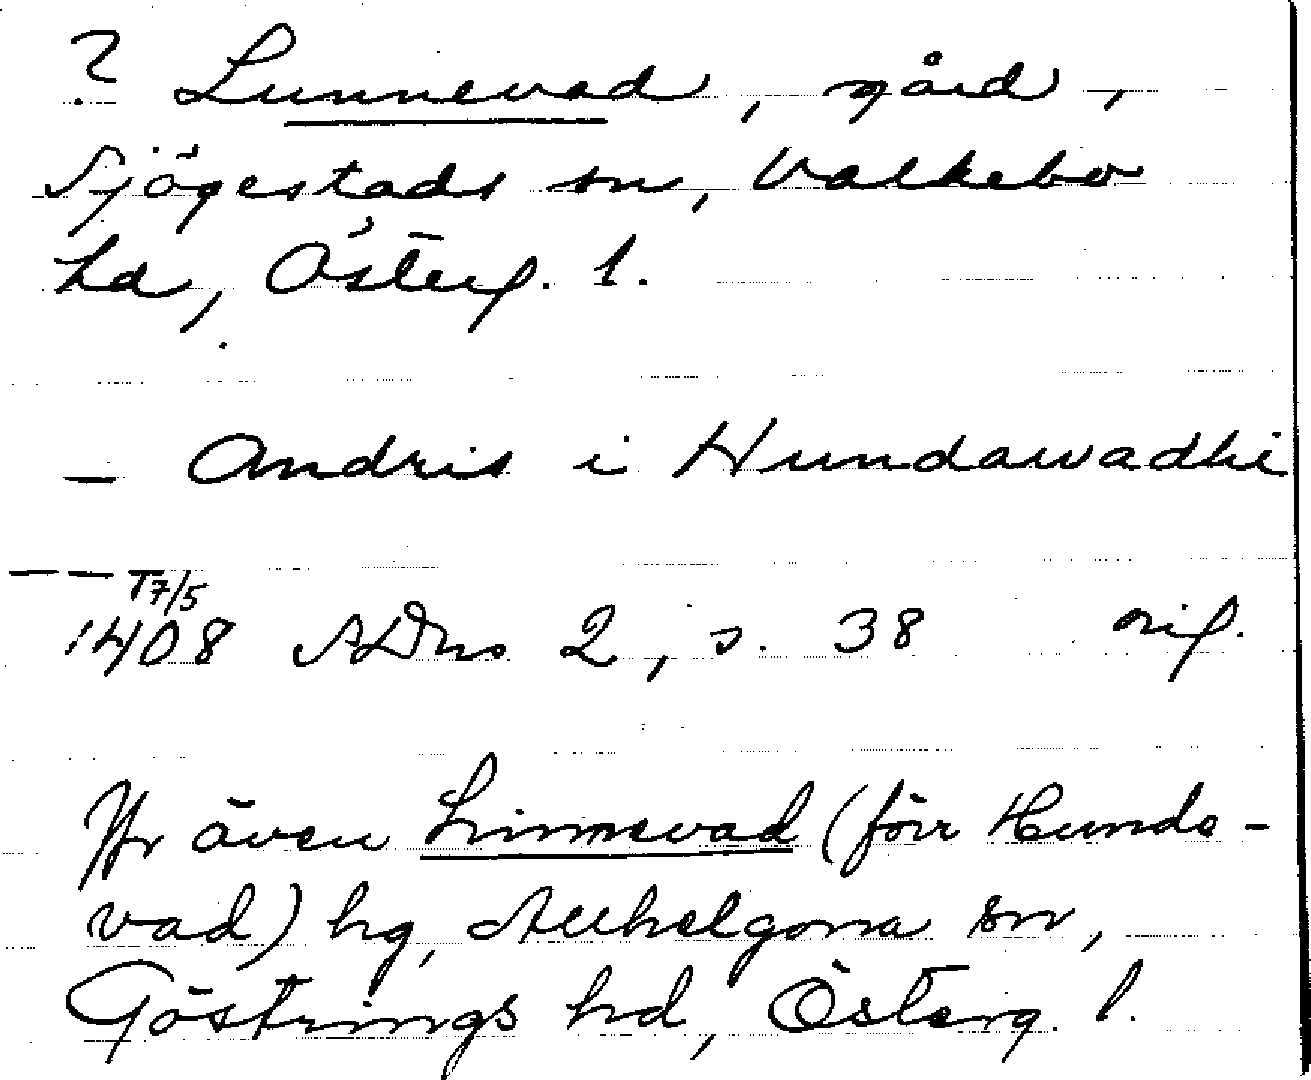 ? Lunnevad, gård,
Sjögestads sn, Valkebo
hd, Österg. l.
– Andris i Hundawadhi
– – T 7/5
1408 SDns 2, s. 38 orig.
Jfr även Linnevad (förr Hunda-
vad) hg, Allhelgona sn,
Göstrings hd, Österg. l.